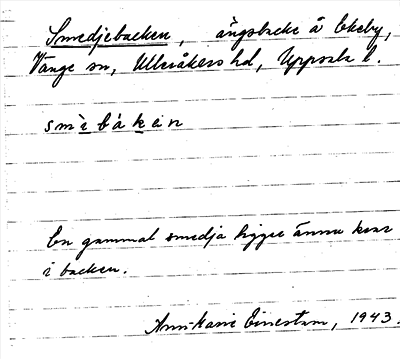 Smedjebacken, ängsbacke å Ekeby,
Vänge sn, Ulleråkers hd, Uppsala l.
smì báken
En gammal smedja ligger ännu kvar
i backen.
Ann-Marie Einestam, 1943.